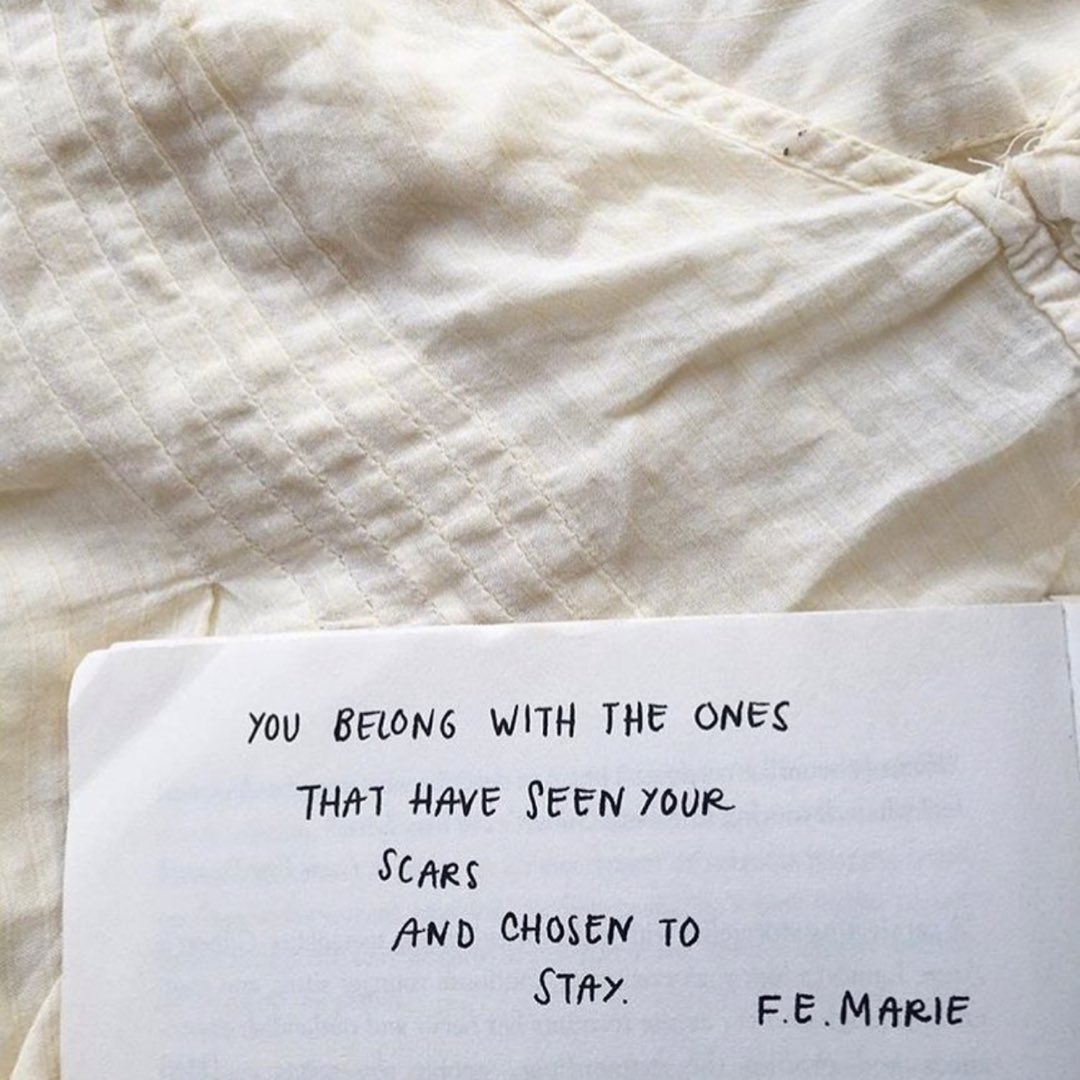 YOU BELONG WITH THE ONES
THAT HAVE SEEN YOUR
SCARS
AND CHOSEN TO
STAY.
F.E. MARIE